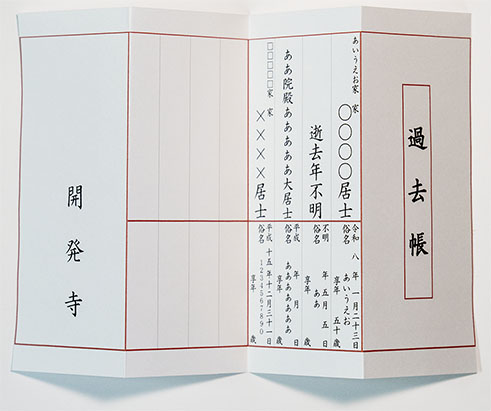 過去帳
あいうえお家 家
〇〇〇〇居士
令和 八 年 一月二十三日
俗名 あいうえお
享年 五十 歳
逝去年不明
不明 年 五月 五 日
俗名 ああ
享年 歳
ああ院殿ああああああ大居士
平成 年 月 日
俗名 ああああああ
享年 歳
□□□□□家 家
××××居士
平成 十五 年十二月三十一日
俗名 1234567890
享年 歳
開発寺